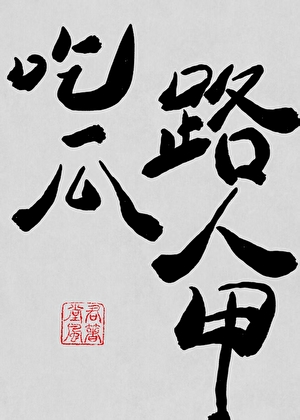 吃瓜
路人甲